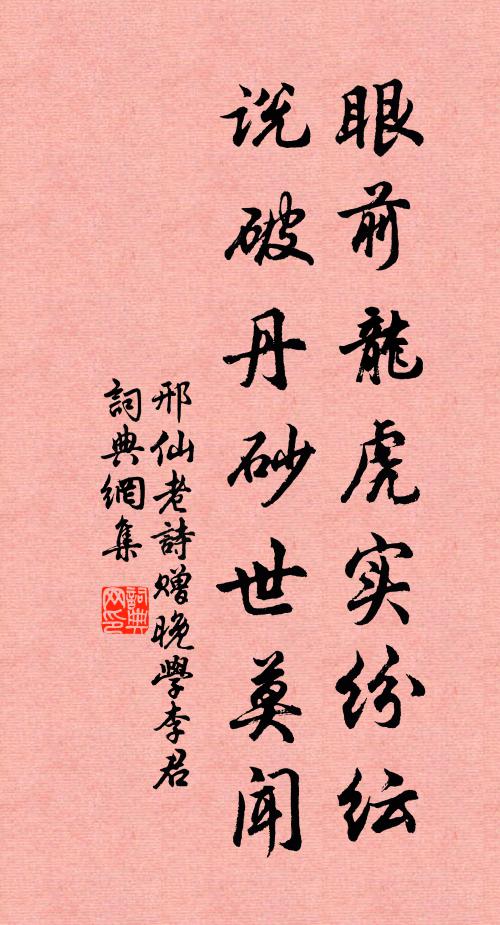 眼前龍虎实纷纭
说破丹砂世莫聞
邢仙老詩赠晚學李君
詞典網集
詞典网印